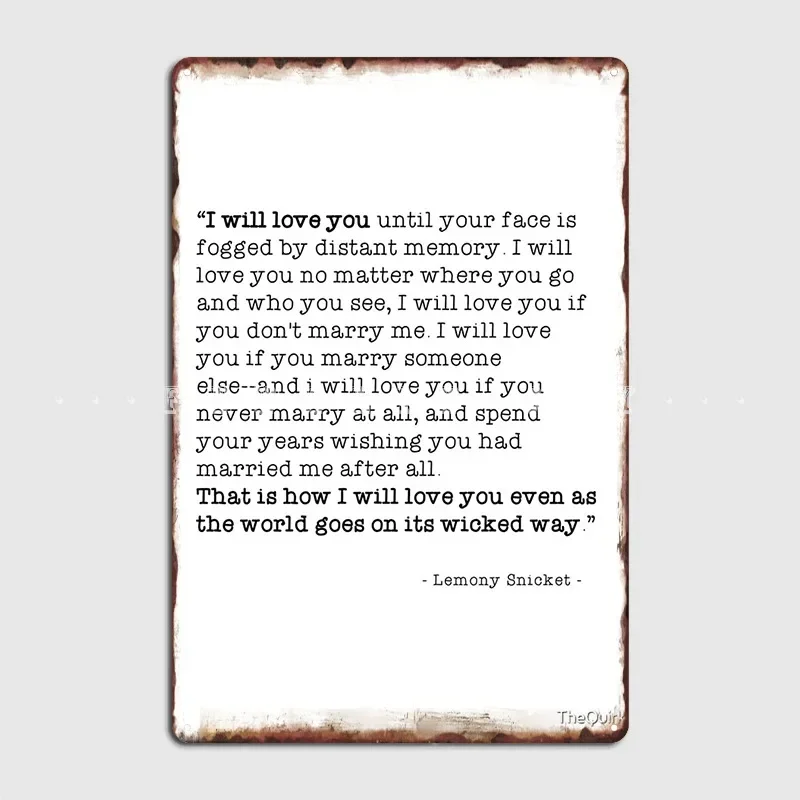 “I will love you until your face is
fogged by distant memory. I will
love you no matter where you go
and who you see, I will love you if
you don't marry me. I will love
you if you marry someone
else--and i will love you if you
never marry at all, and spend
your years wishing you had
married me after all.
That is how I will love you even as
the world goes on its wicked way.”
- Lemony Snicket -
TheQuirk